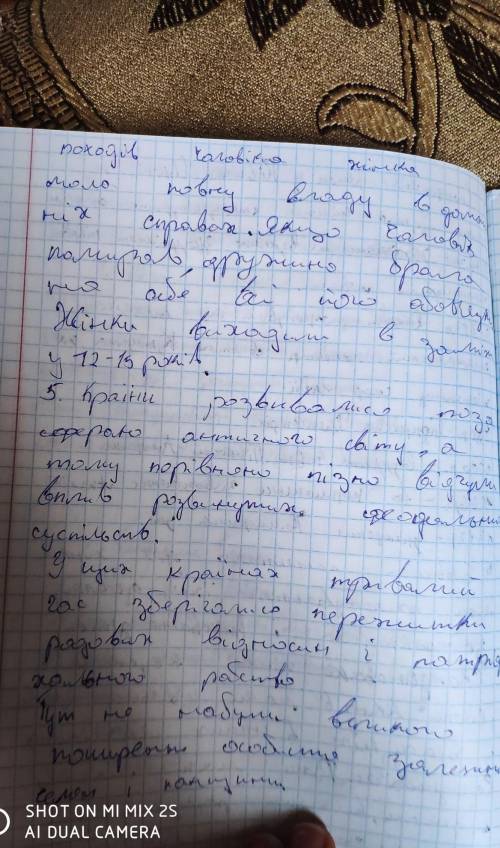 походів чоловіка жінка
мала повну владу в дома
ніх справах. Якщо чоловік
помирав, дружина брала
на себе всі його обовязк
Жінки виходили в заміж
у 12-15 років.
5. Країни розвивалися поза
сферою античного світу, а
тому порівняно пізно відчули
вплив розвинутих феодальни
суспільств.
У цих країнах тривалий
час зберігалися пережитки
родових відносин і патріа
хального рабства
Тут не набули великого
поширення особиста залежні
селян і панщини.
SHOT ON MI MIX 2S
AI DUAL CAMERA